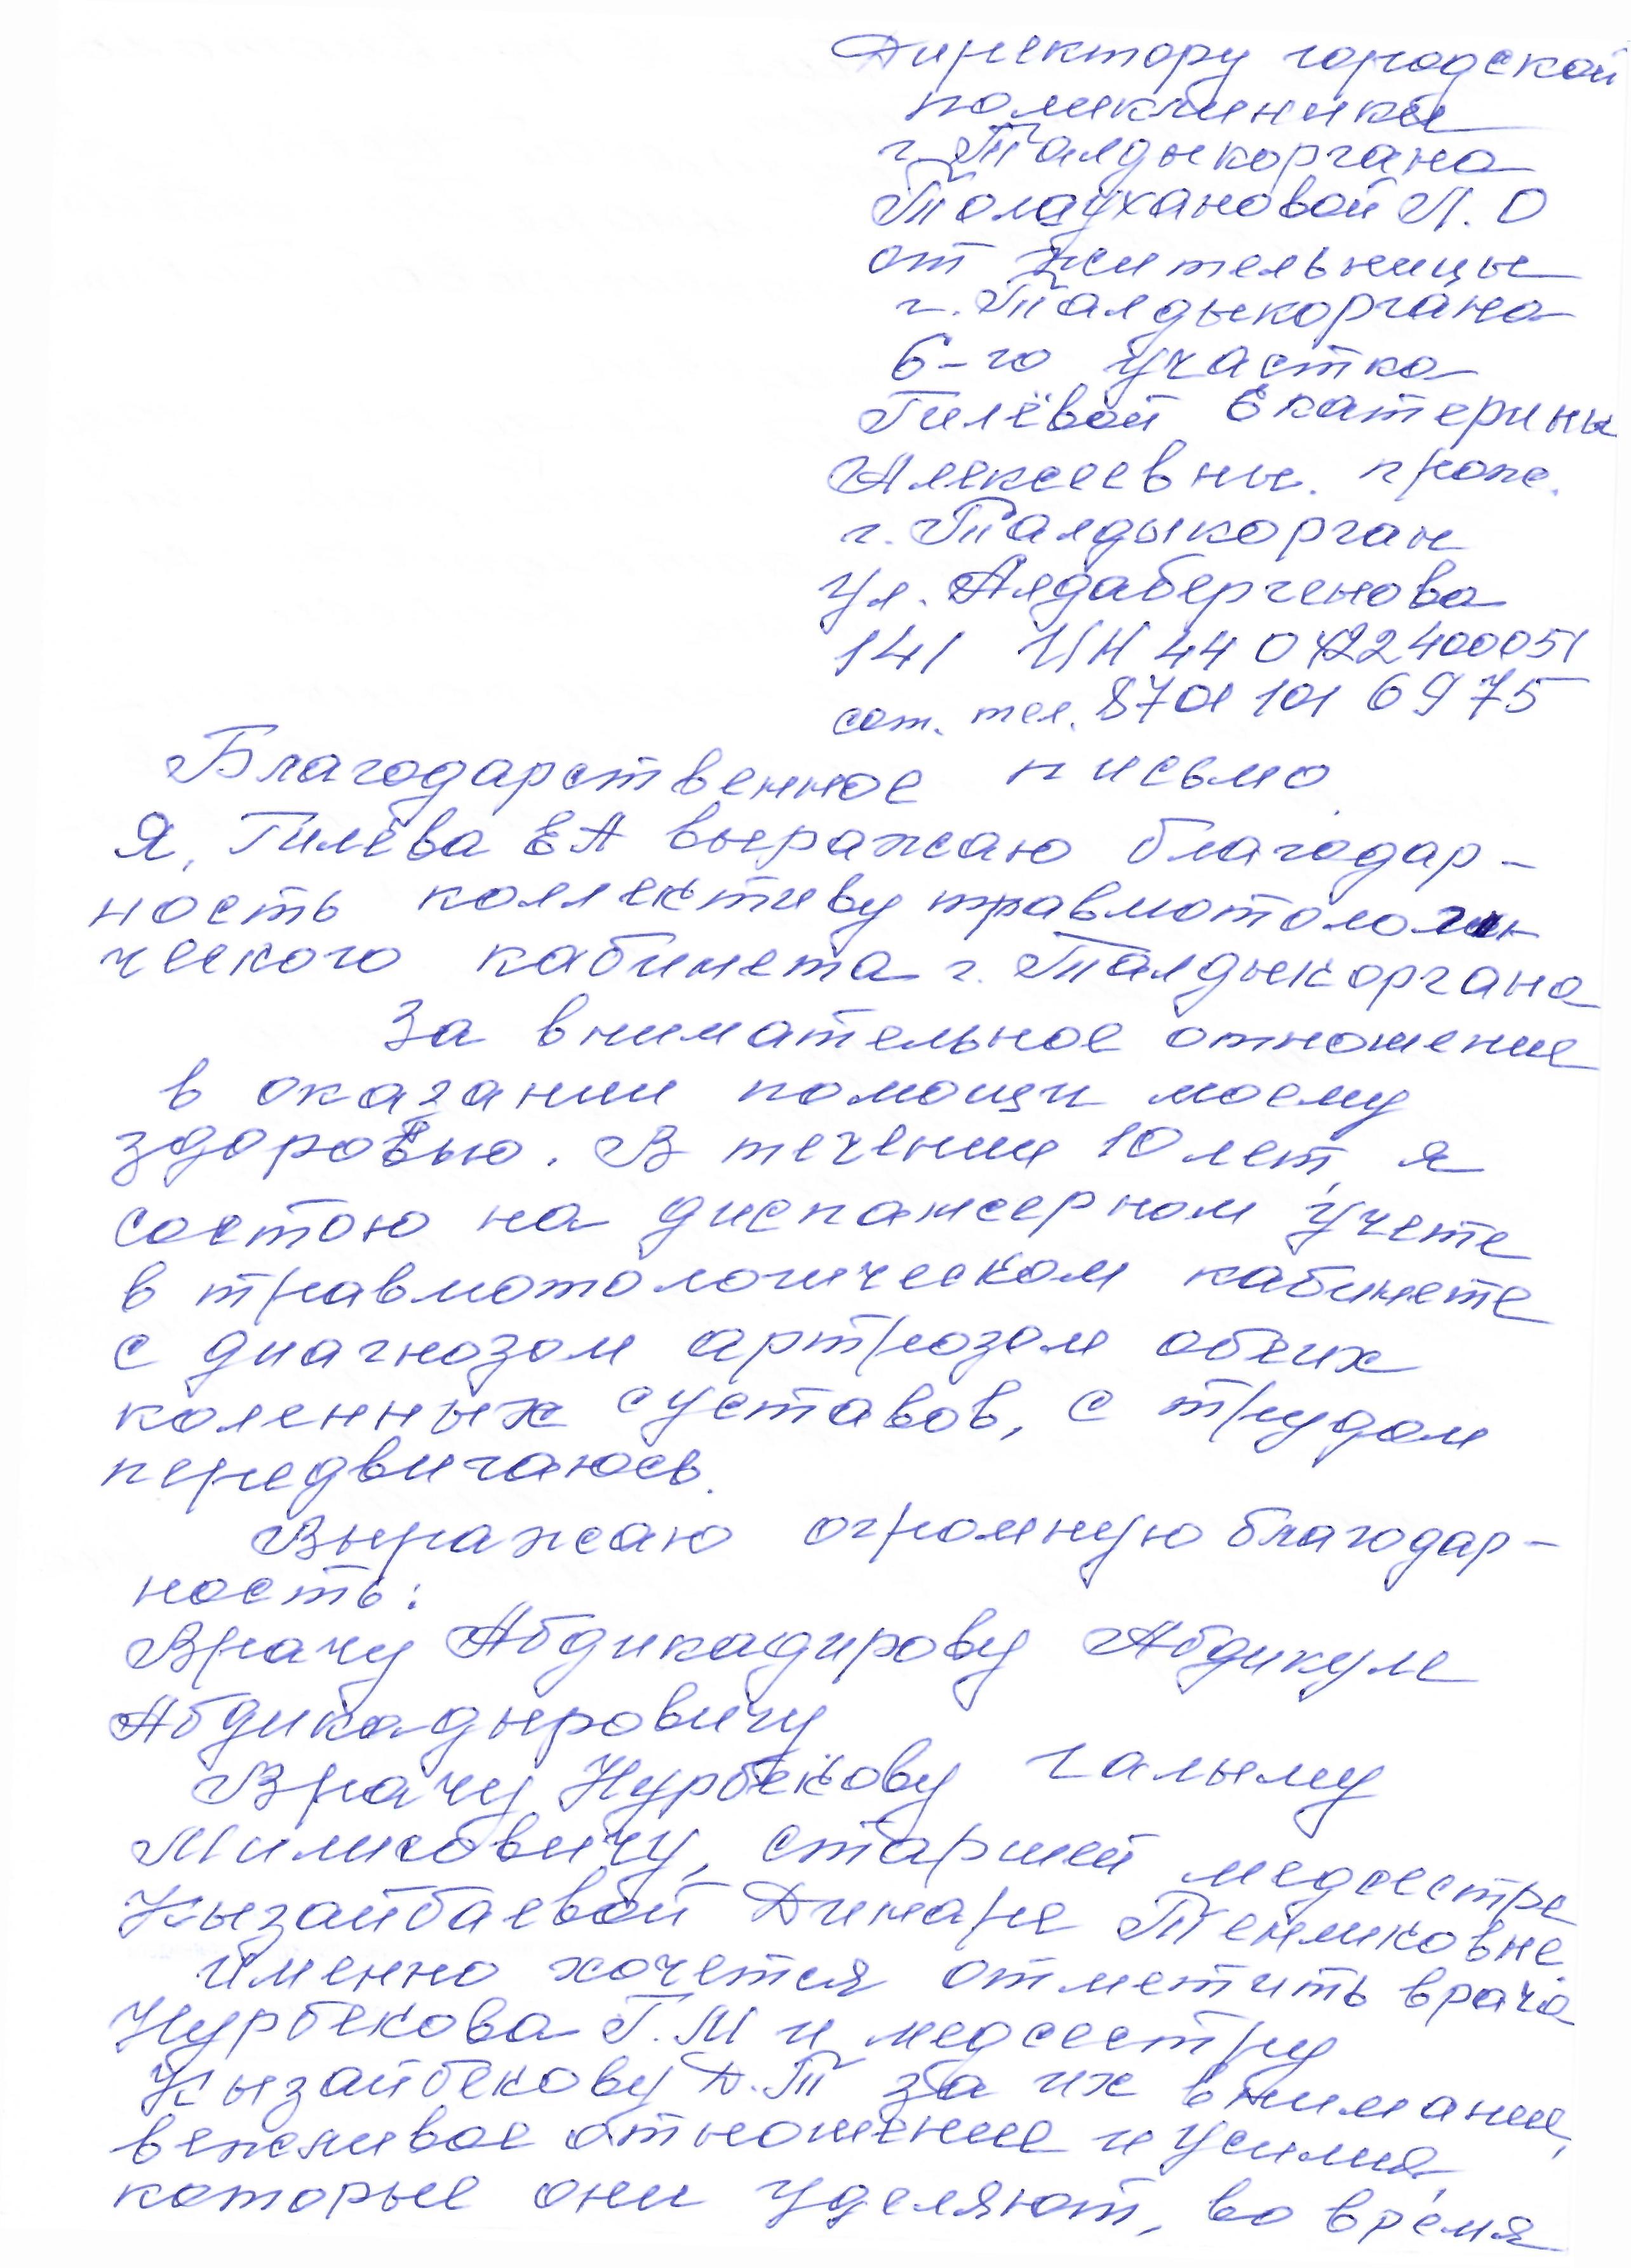 Директору городской
поликлиники
г. Талдыкоргана
Толеухановой Л. О
от жительницы
г. Талдыкоргана
6-го участка
Гилёвой Екатерины
Алексеевны. прож.
г. Талдыкорган
ул. Алдабергенова
141 ИИН 44 0422400051
сот. тел. 8701 101 6975
Благодарственное письмо
Я, Гилёва ЕА выражаю благодар-
ность коллективу травмотологи
ческого кабинета г. Талдыкоргана
За внимательное отношение
в оказании помощи моему
здоровью. В течении 10 лет, я
состою на диспансерном учете
в травмотологическом кабинете
с диагнозом артрозом обеих
коленных суставов, с трудом
передвигаюсь.
Выражаю огромную благодар-
ность:
Врачу Абдикадирову Абдикуле
Абдикадыровичу
Врачу Нурбекову Галыму
Миликовичу, старшей медсестре
Кызайбаевой Динаре Темликовне.
Именно хочется отметить врача
Нурбекова Г.М и медсестру
Кызайбекову Д.Т за их внимание,
вежливое отношение и усилия,
которые они уделяют, во время